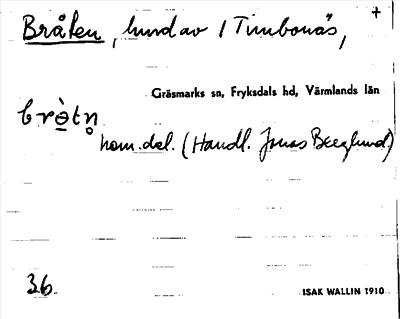 Bråten, hund av 1 Timbonäs, +
Gräsmarks sn, Fryksdals hd, Värmlands län
brə̀tn̥
hom. dal. (Handl. Jonas Berglund.)
36.
ISAK WALLIN 1910